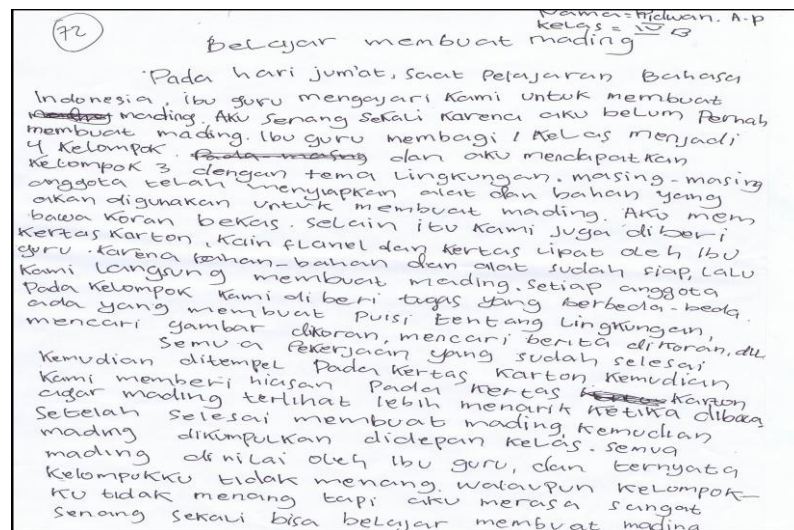 72
Nama = Ridwan. A-P
Kelas = IV B
Belajar membuat mading
Pada hari jum'at, saat pelajaran Bahasa
Indonesia, ibu guru mengajari kami untuk membuat
mading. Aku senang sekali karena aku belum Pernah
membuat mading. Ibu guru membagi 1 kelas menjadi
4 kelompok. Pada masing dan aku mendapatkan
kelompok 3 dengan tema Lingkungan. masing-masing
anggota telah menyiapkan alat dan bahan yang
akan digunakan untuk membuat mading. Aku mem
bawa koran bekas. selain itu kami juga diberi
kertas karton, kain flanel dan kertas lipat oleh Ibu
guru. karena bahan-bahan dan alat sudah siap, lalu
kami langsung membuat mading. setiap anggota
Pada kelompok kami diberi tugas yang berbeda-beda.
ada yang membuat puisi tentang Lingkungan,
mencari gambar dikoran, mencari berita dikoran, dll
Semua Pekerjaan yang sudah selesai
kemudian ditempel Pada kertas karton kemudian
kami memberi hiasan pada kertas karton
agar mading terlihat lebih menarik ketika dibaca,
Setelah selesai membuat mading, kemudian
mading dikumpulkan didepan kelas. semua
mading dinilai oleh Ibu guru, dan ternyata
kelompokku tidak menang. walaupun kelompok-
ku tidak menang tapi aku merasa sangat
senang sekali bisa belajar membuat mading